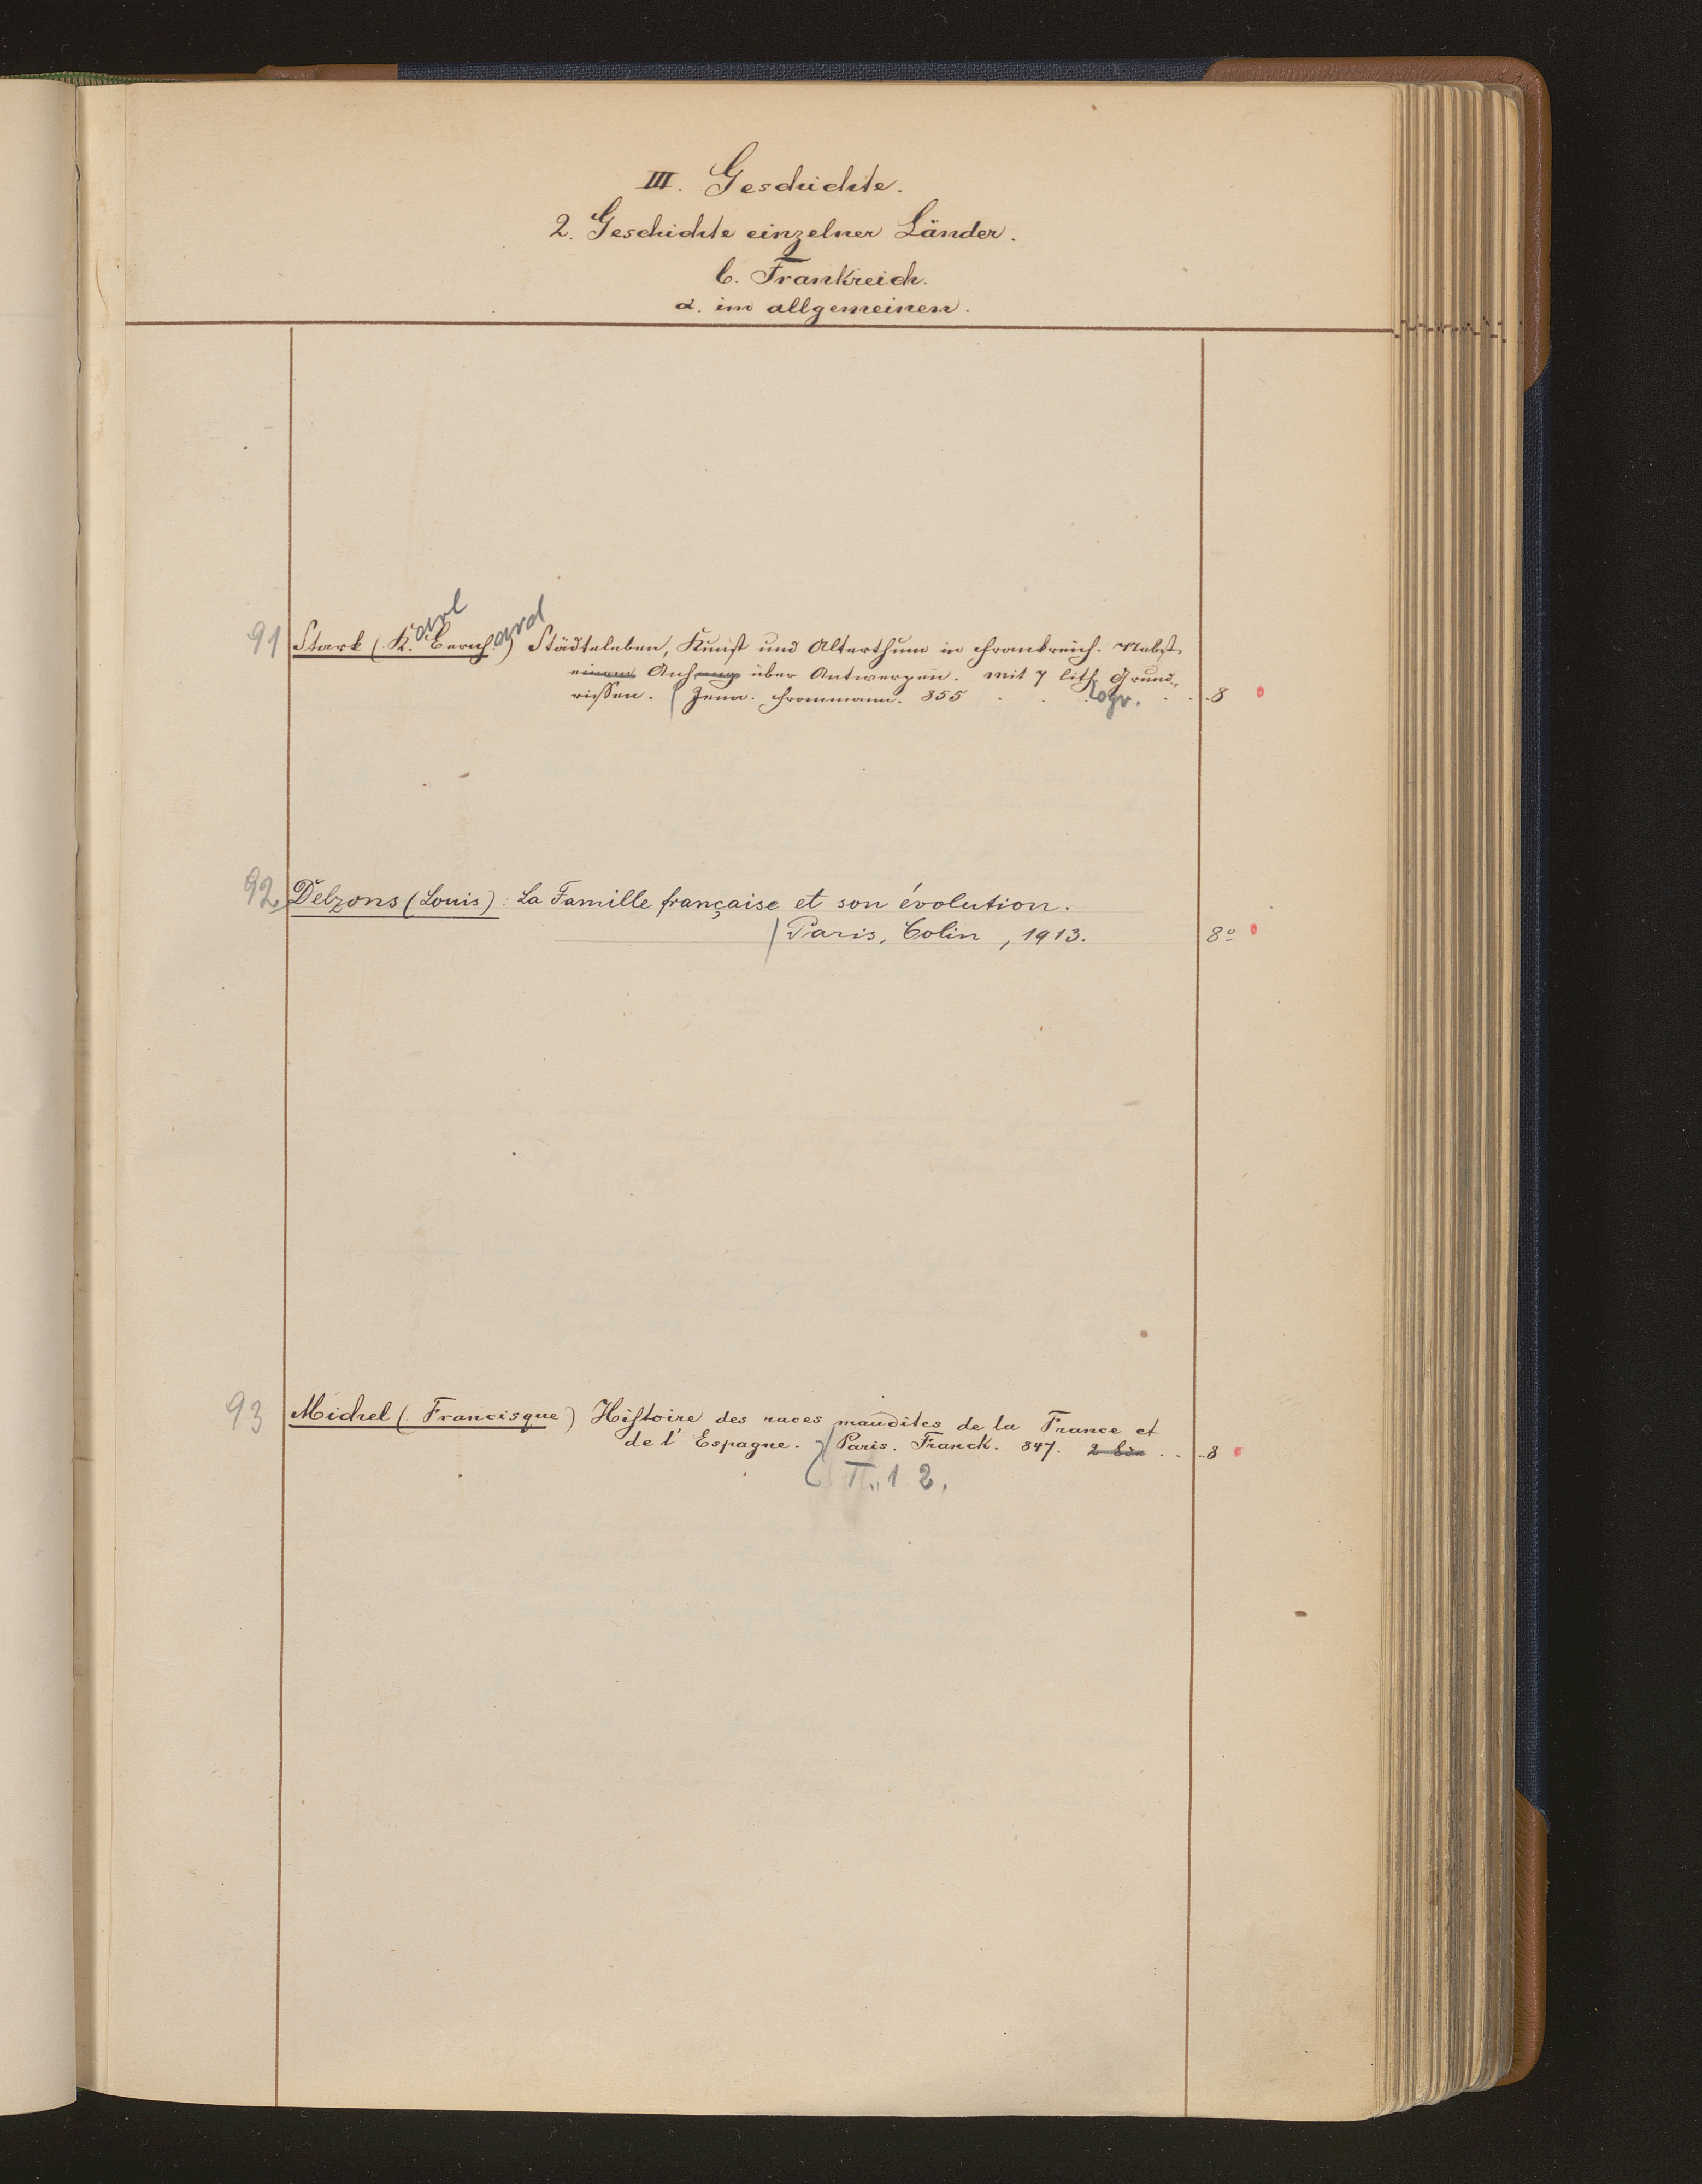 III. Geschichte.
2. Geschichte einzelner Länder.
b. Frankreich.
α. im allgemeinen.
91 Stark (K.arl Bernh.ard) Städteleben, Kunst und Alterthum in Frankreich. Nebst
einem Anhang über Antwerpen. Mit 7 lith. Grund-
rissen. Jena. Frommann. 855 . . . . . 8
92. Delzons (Louis): La Famille française et son évolution.
Paris, Colin, 1913. 8º
93 Michel (Francisque) Histoire des races maudites de la France et
de l'Espagne. Paris. Franck. 847. 2 Bde . . . 8
T. 1. 2.